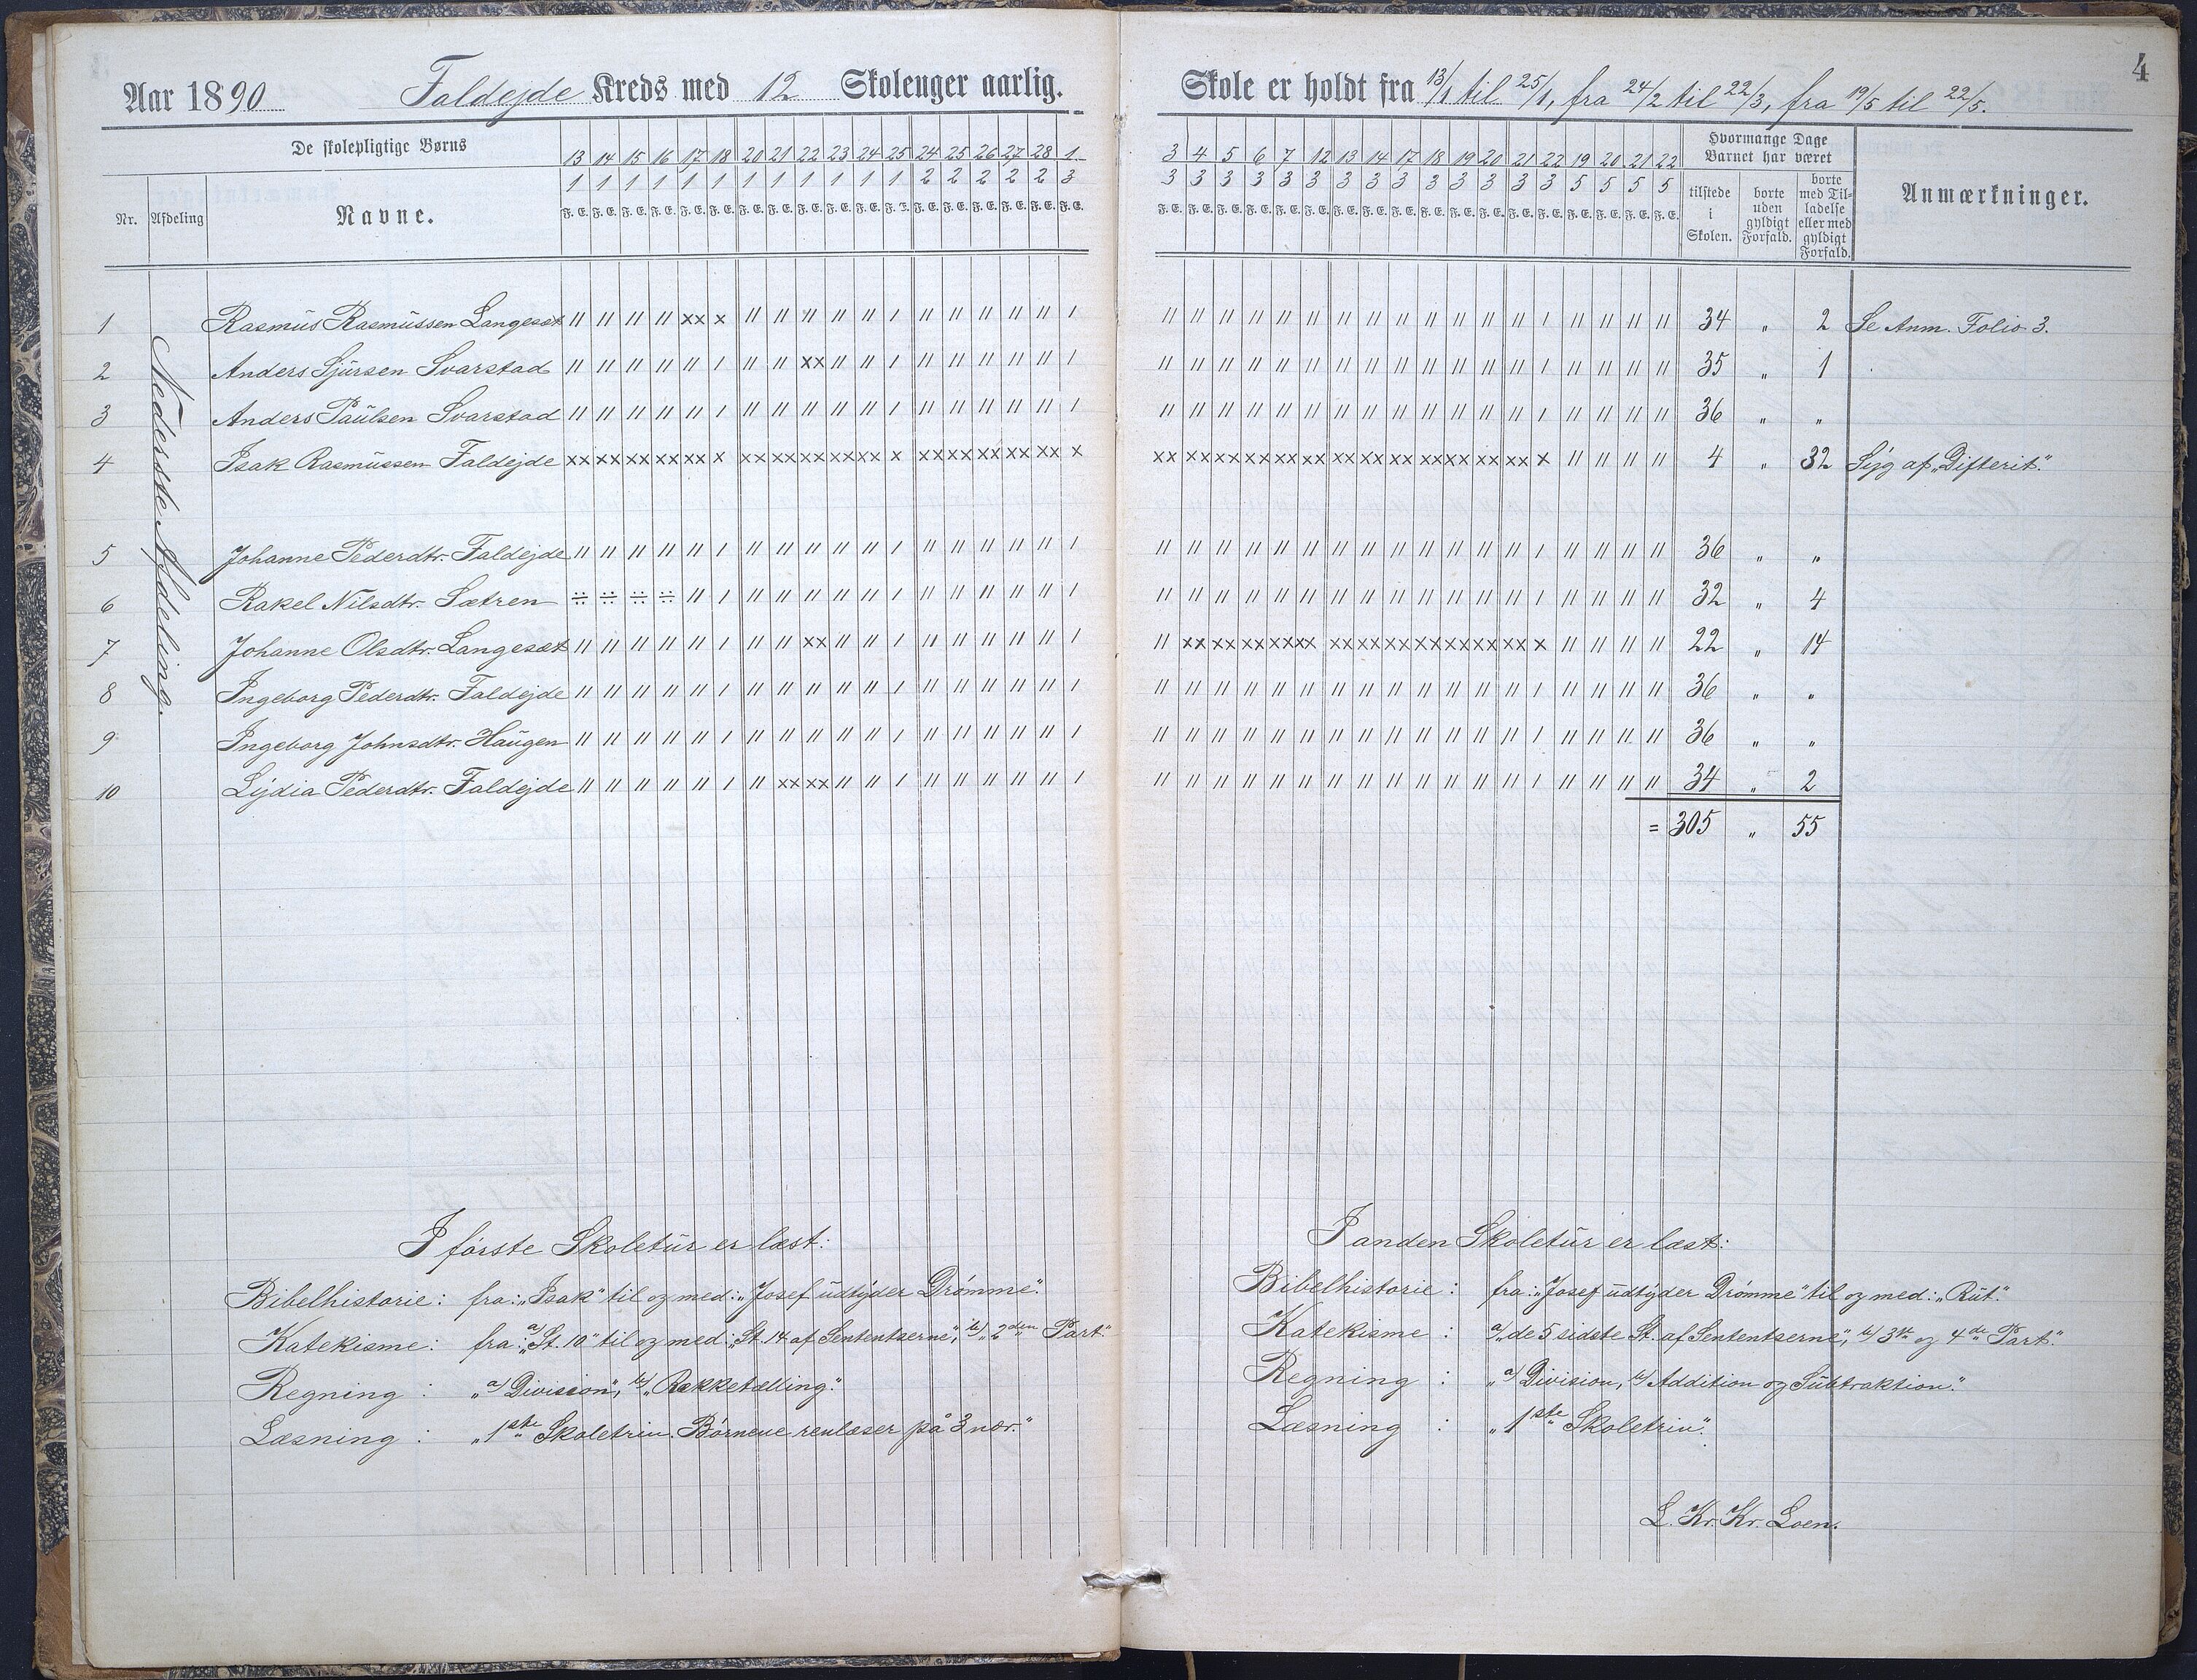 Aar 1890 Faldejde Kreds med 12 Skolenger aarlig.
De skolepligtige Børns
Nr. Afdeling Navne.
13 14 15 16 17 18 20 21 22 23 24 25 24 25 26 27 28 1
1 1 1 1 1 1 1 1 1 1 1 1 2 2 2 2 2 3
F. E. F. E. F. E. F. E. F. E. F. E. F. E. F. E. F. E. F. E. F. E. F. E. F. E. F. E. F. E. F. E. F. E. F. E.
Nederste Afdeling.
1 Rasmus Rasmussen Langesæt " " " " xx x " " " " " ı " " " " " ı
2 Anders Sjursen Svarstad " " " " " ı " " xx " " ı " " " " " ı
3 Anders Paulsen Svarstad " " " " " ı " " " " " ı " " " " " ı
4 Isak Rasmussen Faldejde xx xx xx xx xx x xx xx xx xx xx x xx xx xx xx xx x
5 Johanne Pederdtr. Faldejde " " " " " ı " " " " " ı " " " " " ı
6 Rakel Nilsdtr. Sætren ÷ ÷ ÷ ÷ " ı " " " " " ı " " " " " ı
7 Johanne Olsdtr. Langesæt " " " " " ı " " xx " " ı " " " " " ı
8 Ingeborg Pederdtr. Faldejde " " " " " ı " " " " " ı " " " " " ı
9 Ingeborg Johnsdtr. Haugen " " " " " ı " " " " " ı " " " " " ı
10 Lydia Pederdtr. Faldejde " " " " " ı " xx xx " " ı " " " " " ı
I første Skoletur er læst:
Bibelhistorie: fra: „Isak" til og med: „Josef udtyder Drømme".
Katekisme: fra: a) „St. 10" til og med: „St. 14 af Sententserne", b) „2den Part."
Regning: „a) Division", b) „Rækketælling".
Læsning: „1ste Skoletrin. Børnene renlæser på 3 nær."
4
Skole er holdt fra 13/1 til 25/1, fra 24/2 til 22/3, fra 19/5 til 22/5.
3 4 5 6 7 12 13 14 17 18 19 20 21 22 19 20 21 22
3 3 3 3 3 3 3 3 3 3 3 3 3 3 5 5 5 5
F. E. F. E. F. E. F. E. F. E. F. E. F. E. F. E. F. E. F. E. F. E. F. E. F. E. F. E. F. E. F. E. F. E. F. E.
Hvormange Dage Barnet har været
tilstede i Skolen.
borte uden gyldigt Forfald.
borte med Tilladelse eller med gyldigt Forfald.
Anmærkninger.
" " " " " " " " " " " " " ı " " " " 34 " 2 Se Anm. Folio 3.
" " " " " " " " " " " " " ı " " " " 35 " 1
" " " " " " " " " " " " " ı " " " " 36 " "
xx xx xx xx xx xx xx xx xx xx xx xx xx x " " " " 4 " 32 Syg af „Difterit."
" " " " " " " " " " " " " ı " " " " 36 " "
" " " " " " " " " " " " " ı " " " " 32 " 4
" xx xx xx xx xx xx xx xx xx xx xx xx x " " " " 22 " 14
" " " " " " " " " " " " " ı " " " " 36 " "
" " " " " " " " " " " " " ı " " " " 36 " "
" " " " " " " " " " " " " ı " " " " 34 " 2
= 305 " 55
I anden Skoletur er læst:
Bibelhistorie: fra: „Josef udtyder Drømme" til og med: „Rut."
Katekisme: a) „de 5 sidste St. af Sententserne", b) 3die og 4de Part."
Regning: „a) Division, b) Addition og Subtraktion."
Læsning: „1ste Skoletrin."
L. Kr. Kr. Loen.